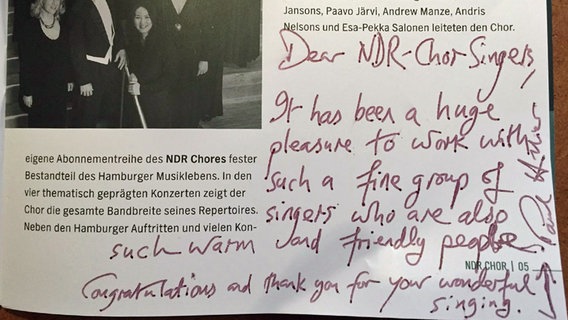 Jansons, Paavo Järvi, Andrew Manze, Andris
Nelsons und Esa-Pekka Salonen leiteten den Chor.
Dear NDR-Chor-Singers,
It has been a huge
pleasure to work with
such a fine group of
singers who are also
such warm and friendly people
Congratulations and thank you for your wonderful
singing.
Paul Hillier
eigene Abonnementreihe des NDR Chores fester
Bestandteil des Hamburger Musiklebens. In den
vier thematisch geprägten Konzerten zeigt der
Chor die gesamte Bandbreite seines Repertoires.
Neben den Hamburger Auftritten und vielen Kon-
NDR CHOR | 05